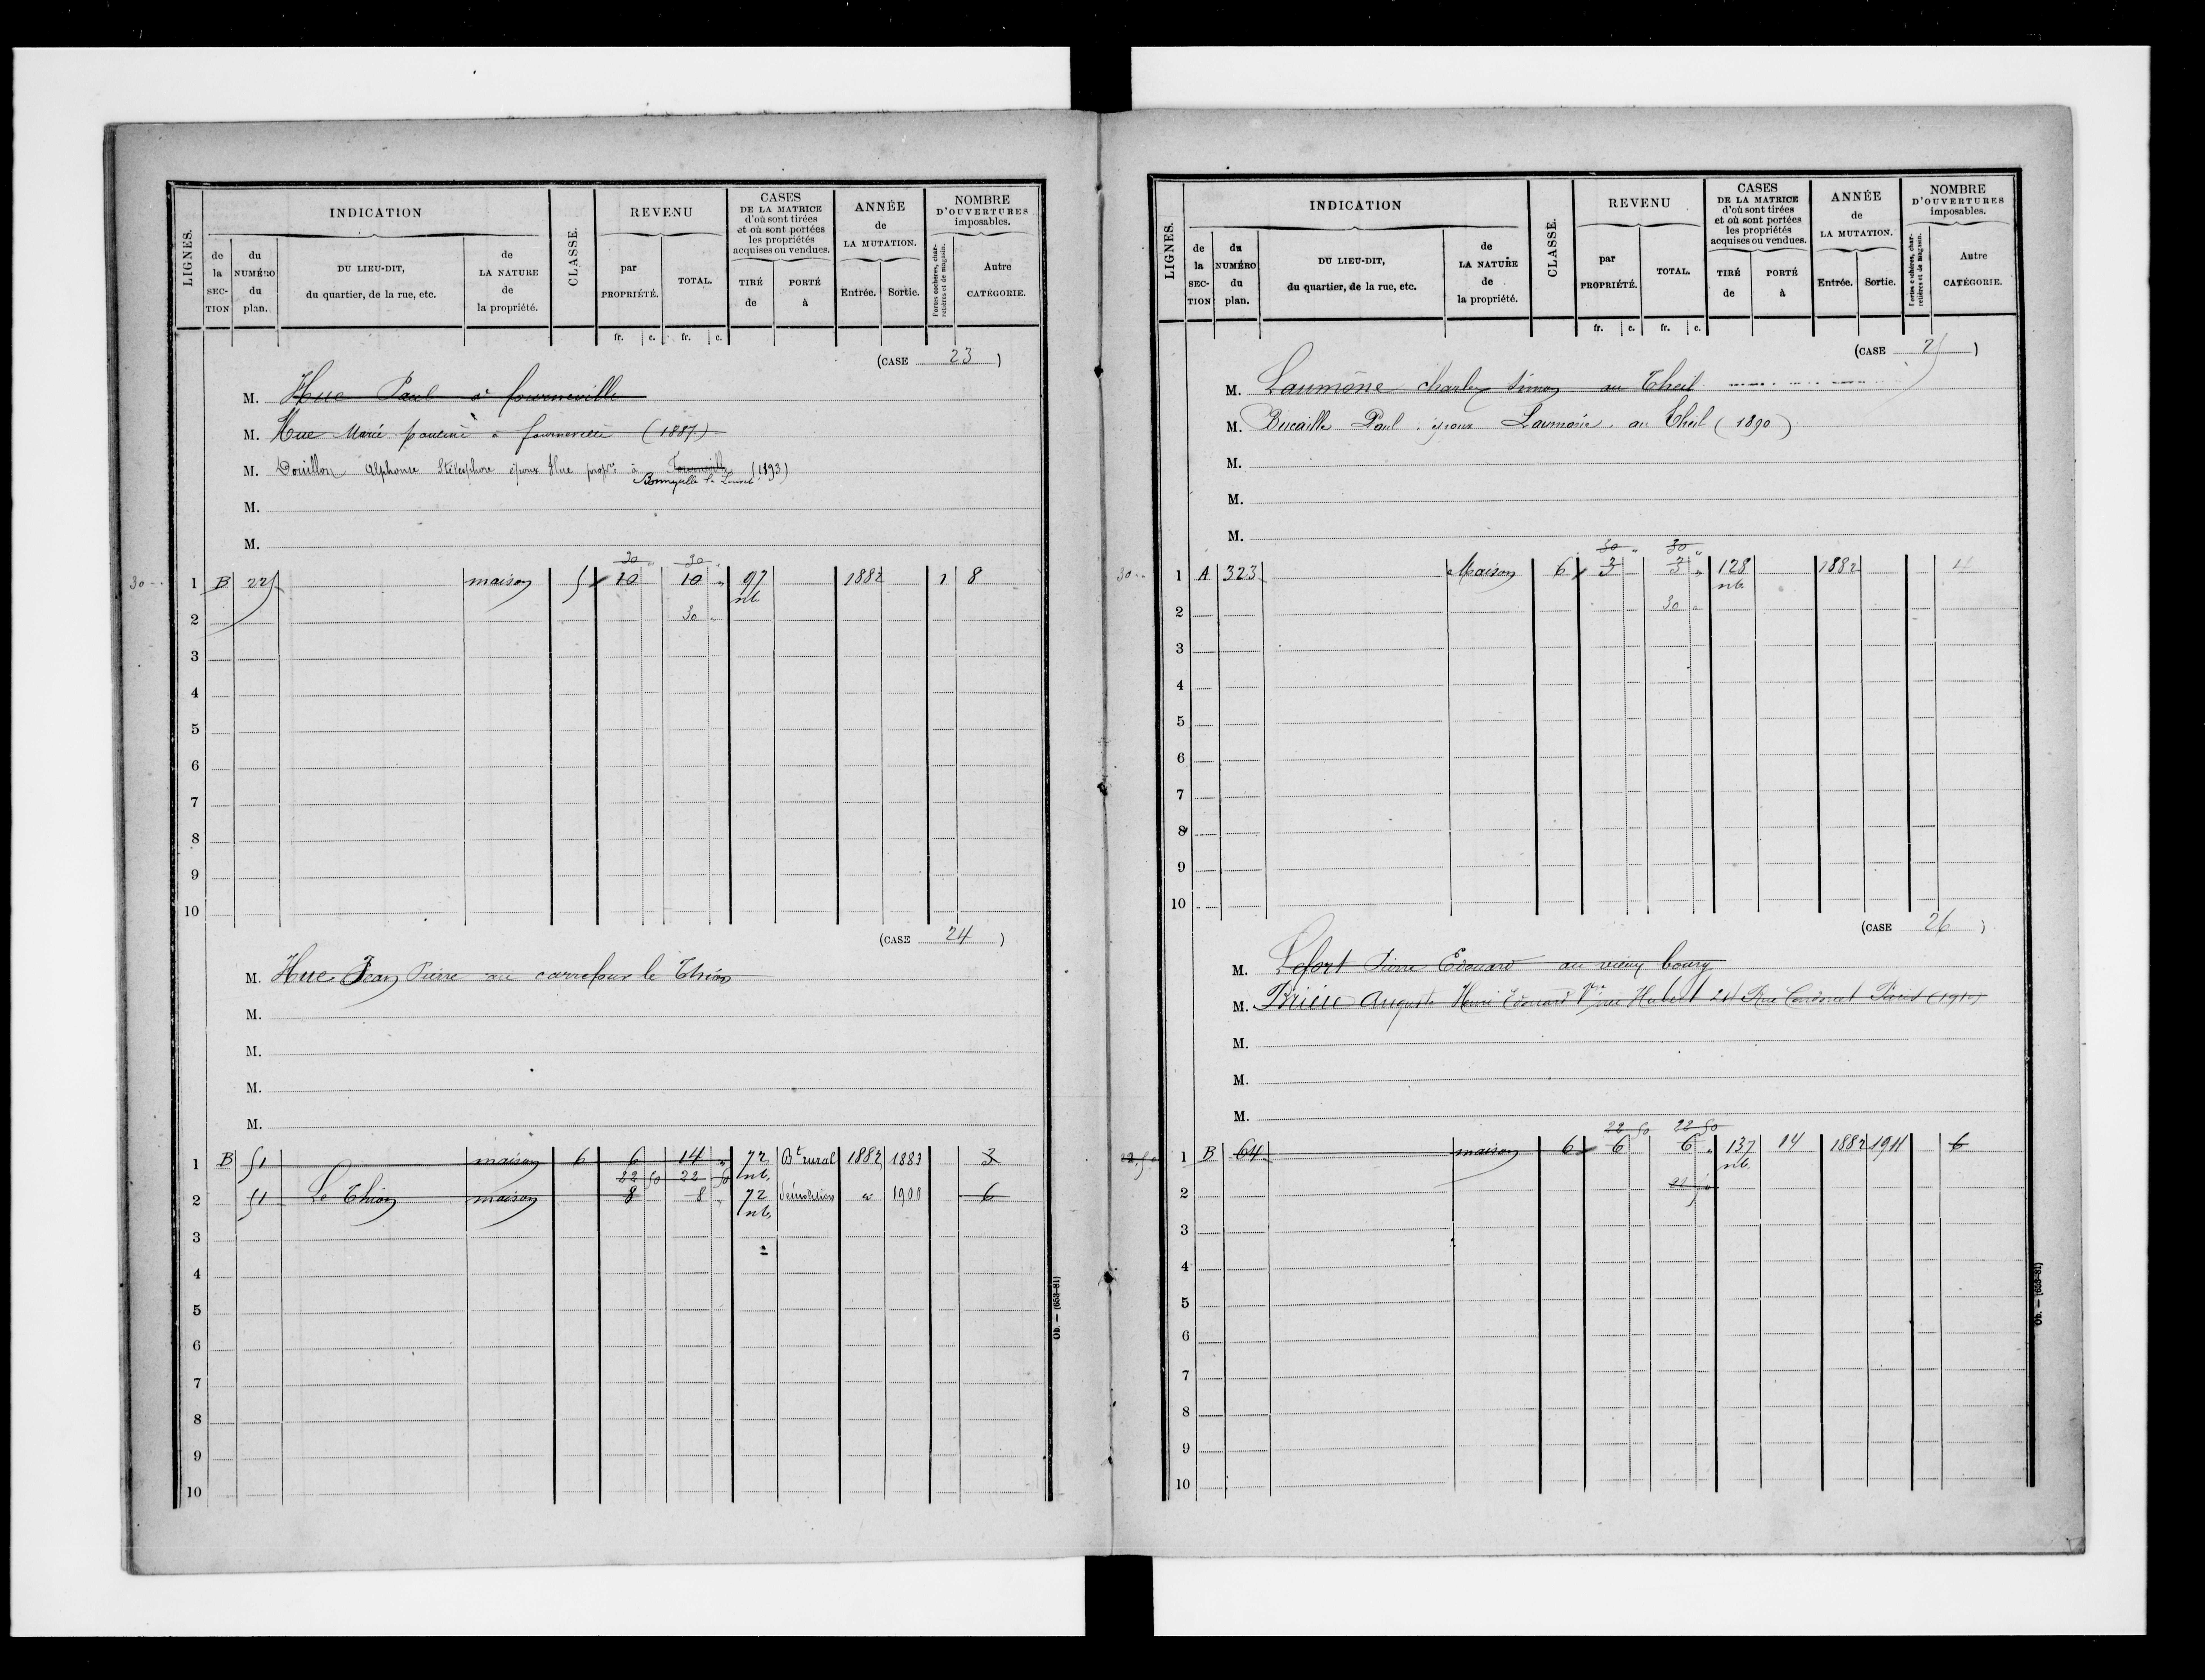 LIGNES.
INDICATION
CLASSE.
REVENU
CASES
DE LA MATRICE
d'où sont tirées
et où sont portées
les propriétés
acquises ou vendues.
ANNÉE
de
LA MUTATION.
NOMBRE
D'OUVERTURES
imposables.
de
la
SEC-
TION
du
NUMÉRO
du
plan.
DU LIEU-DIT,
du quartier, de la rue, etc.
de
LA NATURE
de
la propriété.
par
PROPRIÉTÉ.
TOTAL.
TIRÉ
de
PORTÉ
à
Entrée.
Sortie.
Portes cochères, char-
retières et de magasin.
Autre
CATÉGORIE.
fr. c. fr. c.
(CASE 23)
M. Hue Paul à fourneville
M. Hue Marie pauline à fourneville (1887)
M. Douillon Alphonse Stélesphore époux Hue propre à Fourneville (1893)
Bonneville la Louvet
M.
M.
30 " 30 "
30 " 1 B 225 maison 5 10 10 " 97 1882 1 8
nb
2 30 "
3
4
5
6
7
8
9
10
(CASE 24)
M. Hue Jean Pierre au carrefour le Thion
M.
M.
M.
M.
1 B 51 maison 6 6 14 " 72 Bt rural 1882 1883 3
22 50 22 50 nb
2 51 Le Thion maison 8 8 " 72 démolition " 1900 6
nb
3
4
5
6
7
8
9
10
Ob. — (658-81)
LIGNES.
INDICATION
CLASSE.
REVENU
CASES
DE LA MATRICE
d'où sont tirées
et où sont portées
les propriétés
acquises ou vendues.
ANNÉE
de
LA MUTATION.
NOMBRE
D'OUVERTURES
imposables.
de
la
SEC-
TION
du
NUMÉRO
du
plan.
DU LIEU-DIT,
du quartier, de la rue, etc.
de
LA NATURE
de
la propriété.
par
PROPRIÉTÉ.
TOTAL.
TIRÉ
de
PORTÉ
à
Entrée.
Sortie.
Portes cochères, char-
retières et de magasin.
Autre
CATÉGORIE.
fr. c. fr. c.
(CASE 25)
M. Laumône Charles Simon au Theil
M. Bucaille Paul époux Laumône au Theil (1890)
M.
M.
M.
30 " 30 "
30 " 1 A 323 Maison 6 3 3 " 128 1882 4
nb
2 30 "
3
4
5
6
7
8
9
10
(CASE 26)
M. Lefort Pierre Edouard au vieux bourg
M. Brière Auguste Henri Edouard Vve née Hubert 24 Rue Cardinet Paris (1910)
M.
M.
M.
22 50 22 50
22,50 1 B 64 maison 6 6 6 " 137 14 1882 1911 6
nb
2 22 50
3
4
5
6
7
8
9
10
Ob. — (658-81)